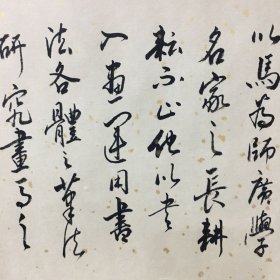 以馬為師廣學
名家之長耕
耘不止他以書
入畫運用書
法各體之筆法
研究畫馬之